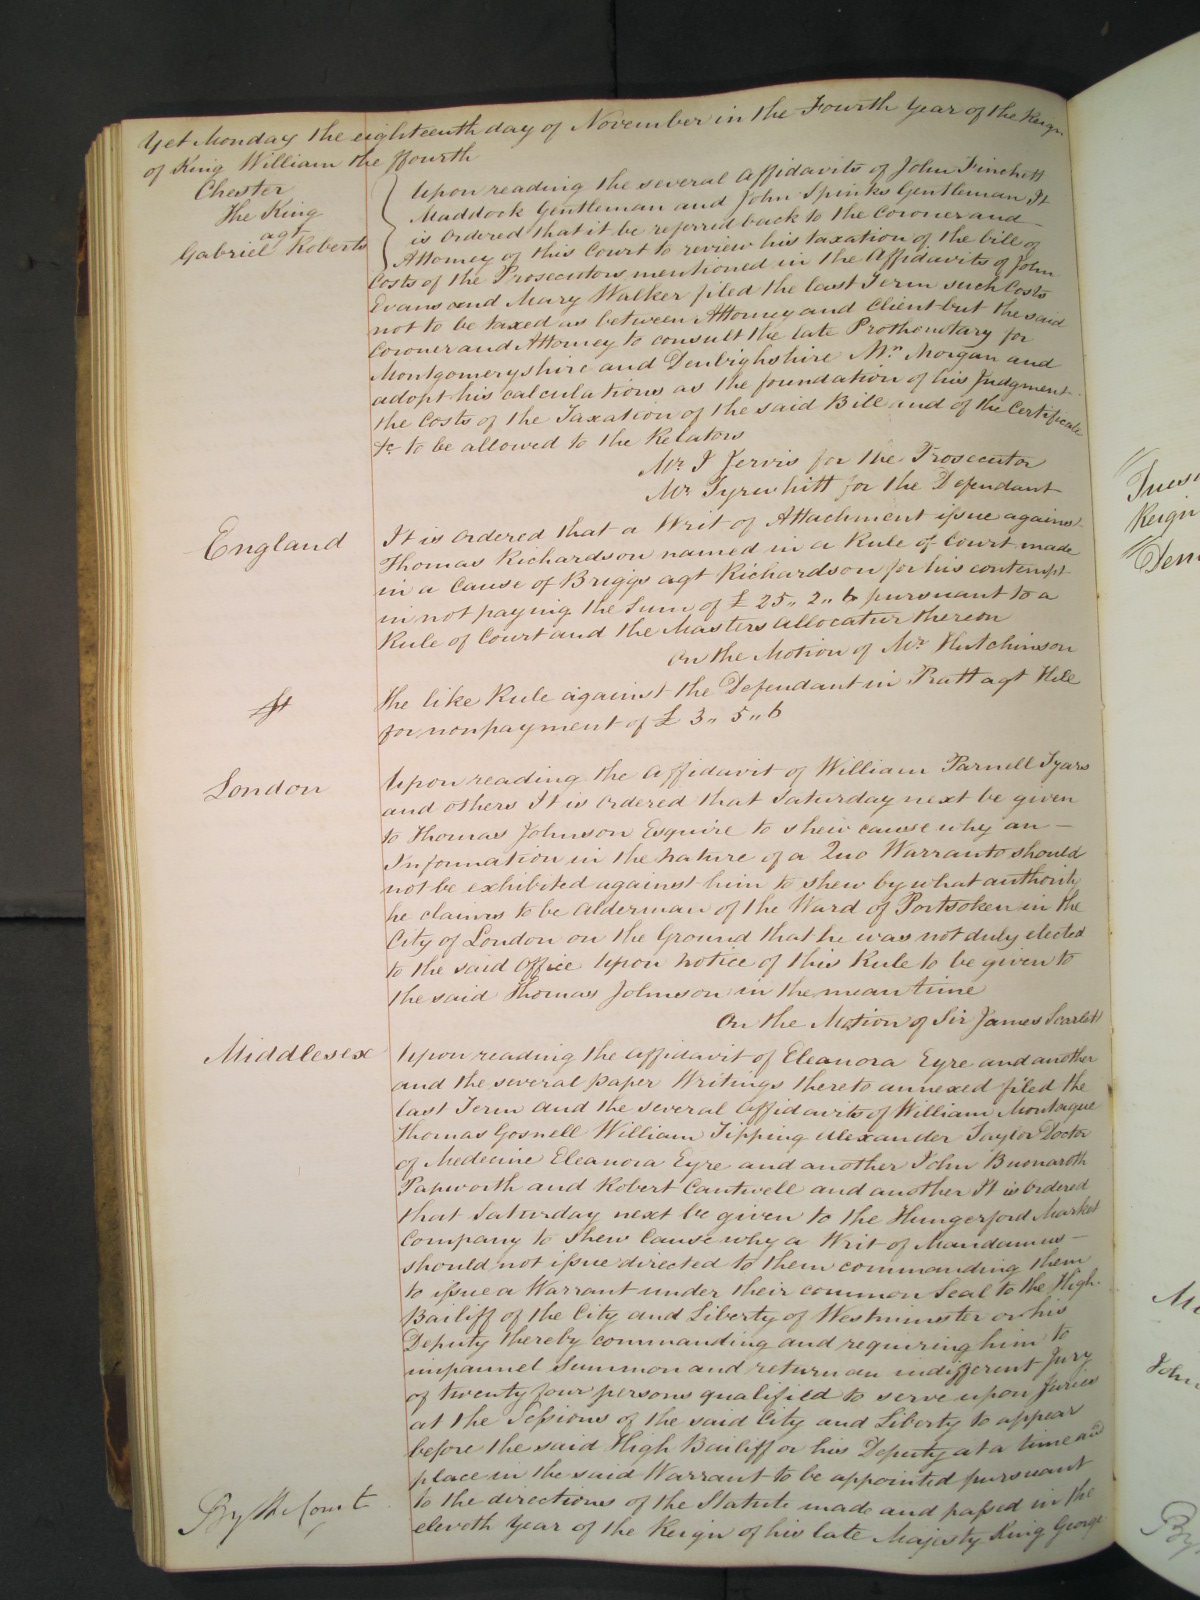 Yet Monday the eighteenth day of November in the Fourth Year of the Reign
of King William the ffourth
Chester
The King
agt
Gabriel Roberts
Upon reading the several affidavits of John Finchett
Maddock Gentleman and John Spinks Gentleman It
is Ordered that it be referred back to the Coroner and
Attorney of this Court to review his taxation of the bill of
Costs of the Prosecutors mentioned in the affidavits of John
Evans and Mary Walker filed the last Term such Costs
not to be taxed as between Attorney and Client but the said
Coroner and Attorney to consult the late Prothonotary for
Montgomeryshire and Denbighshire Mr Morgan and
adopt his calculations as the foundation of his Judgment
the Costs of the Taxation of the said Bill and of the Certificate
&c to be allowed to the Relators
Mr J Jervis for the Prosecutor
Mr Tyrwhitt for the Defendant
England
It is Ordered that a Writ of Attachment issue against
Thomas Richardson named in a Rule of Court made
in a Cause of Briggs agt Richardson for his contempt
in not paying the Sum of £ 25,, 2,, 6 pursuant to a
Rule of Court and the Masters allocatur thereon
On the Motion of Mr Hutchinson
The like Rule against the Defendant in Pratt agt Hill
for nonpayment of £ 3,, 5,, 6
London
Upon reading the affidavit of William Parnell Tyars
and others It is Ordered that Saturday next be given
to Thomas Johnson Esquire to shew cause why an —
Information in the nature of a Quo Warranto should
not be exhibited against him to shew by what authority
he claims to be Alderman of the Ward of Portsoken in the
City of London on the Ground that he was not duly elected
to the said Office Upon notice of this Rule to be given to
the said Thomas Johnson in the mean time
On the Motion of Sir James Scarlett
Middlesex
Upon reading the affidavit of Eleanora Eyre and another
and the several paper Writings thereto annexed filed the
last Term and the several affidavits of William Montague
Thomas Gosnell William Tipping Alexander Taylor Doctor
of Medicine Eleanora Eyre and another John Buonaroth
Papworth and Robert Cantwell and another It is Ordered
that Saturday next be given to the Hungerford Market
Company to shew Cause why a Writ of Mandamus —
should not issue directed to them commanding them
to issue a Warrant under their common Seal to the High
Bailiff of the City and Liberty of Westminster or his
Deputy thereby commanding and requiring him to
impannel Summon and return an indifferent Jury
of twenty four persons qualified to serve upon Juries
at the Sessions of the said City and Liberty to appear
before the said High Bailiff or his Deputy at a time and
place in the said Warrant to be appointed pursuant
to the directions of the Statute made and passed in the
eleventh Year of the Reign of his late Majesty King George
By the Court
Reign